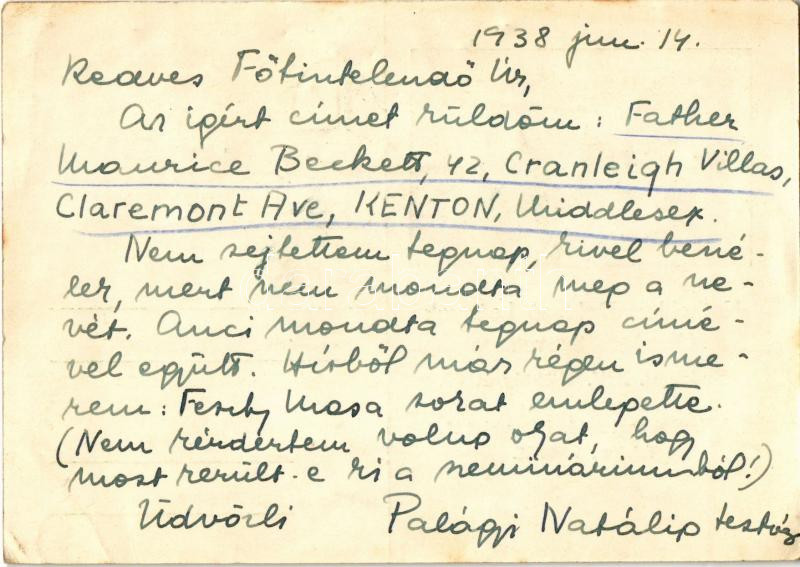 1938 jun. 14.
Kedves Főtintelendő Úr,
Az igért címet küldöm: Father
Maurice Beckett, 42, Cranleigh Villas,
Claremont Ave, KENTON, Middlesex.
Nem sejtettem tegnap, kivel beszé-
lek, mert nem mondta meg a ne-
vét. Anci mondta tegnap címé-
vel együtt. Hírből már régen isme-
rem: Feszty Masa sokat emlegette.
(Nem kérdertem volna okat, hogy
most került-e ki a szemináriumból!)
Üdvözli Palágyi Natália testvér